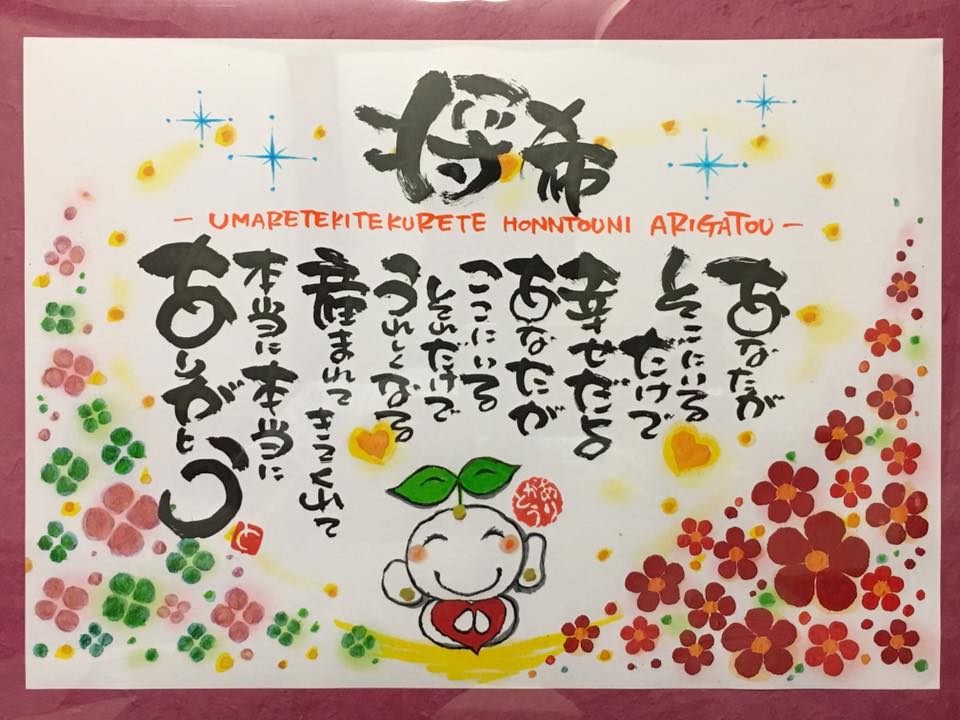 将希
- UMARETEKITEKURETE HONNTOUNI ARIGATOU -
あなたが
そこにいる
だけで
幸せだよ
あなたが
ここにいる
それだけで
うれしくなる
産まれて きてくれて
本当に本当に
ありがとう
ありがとう